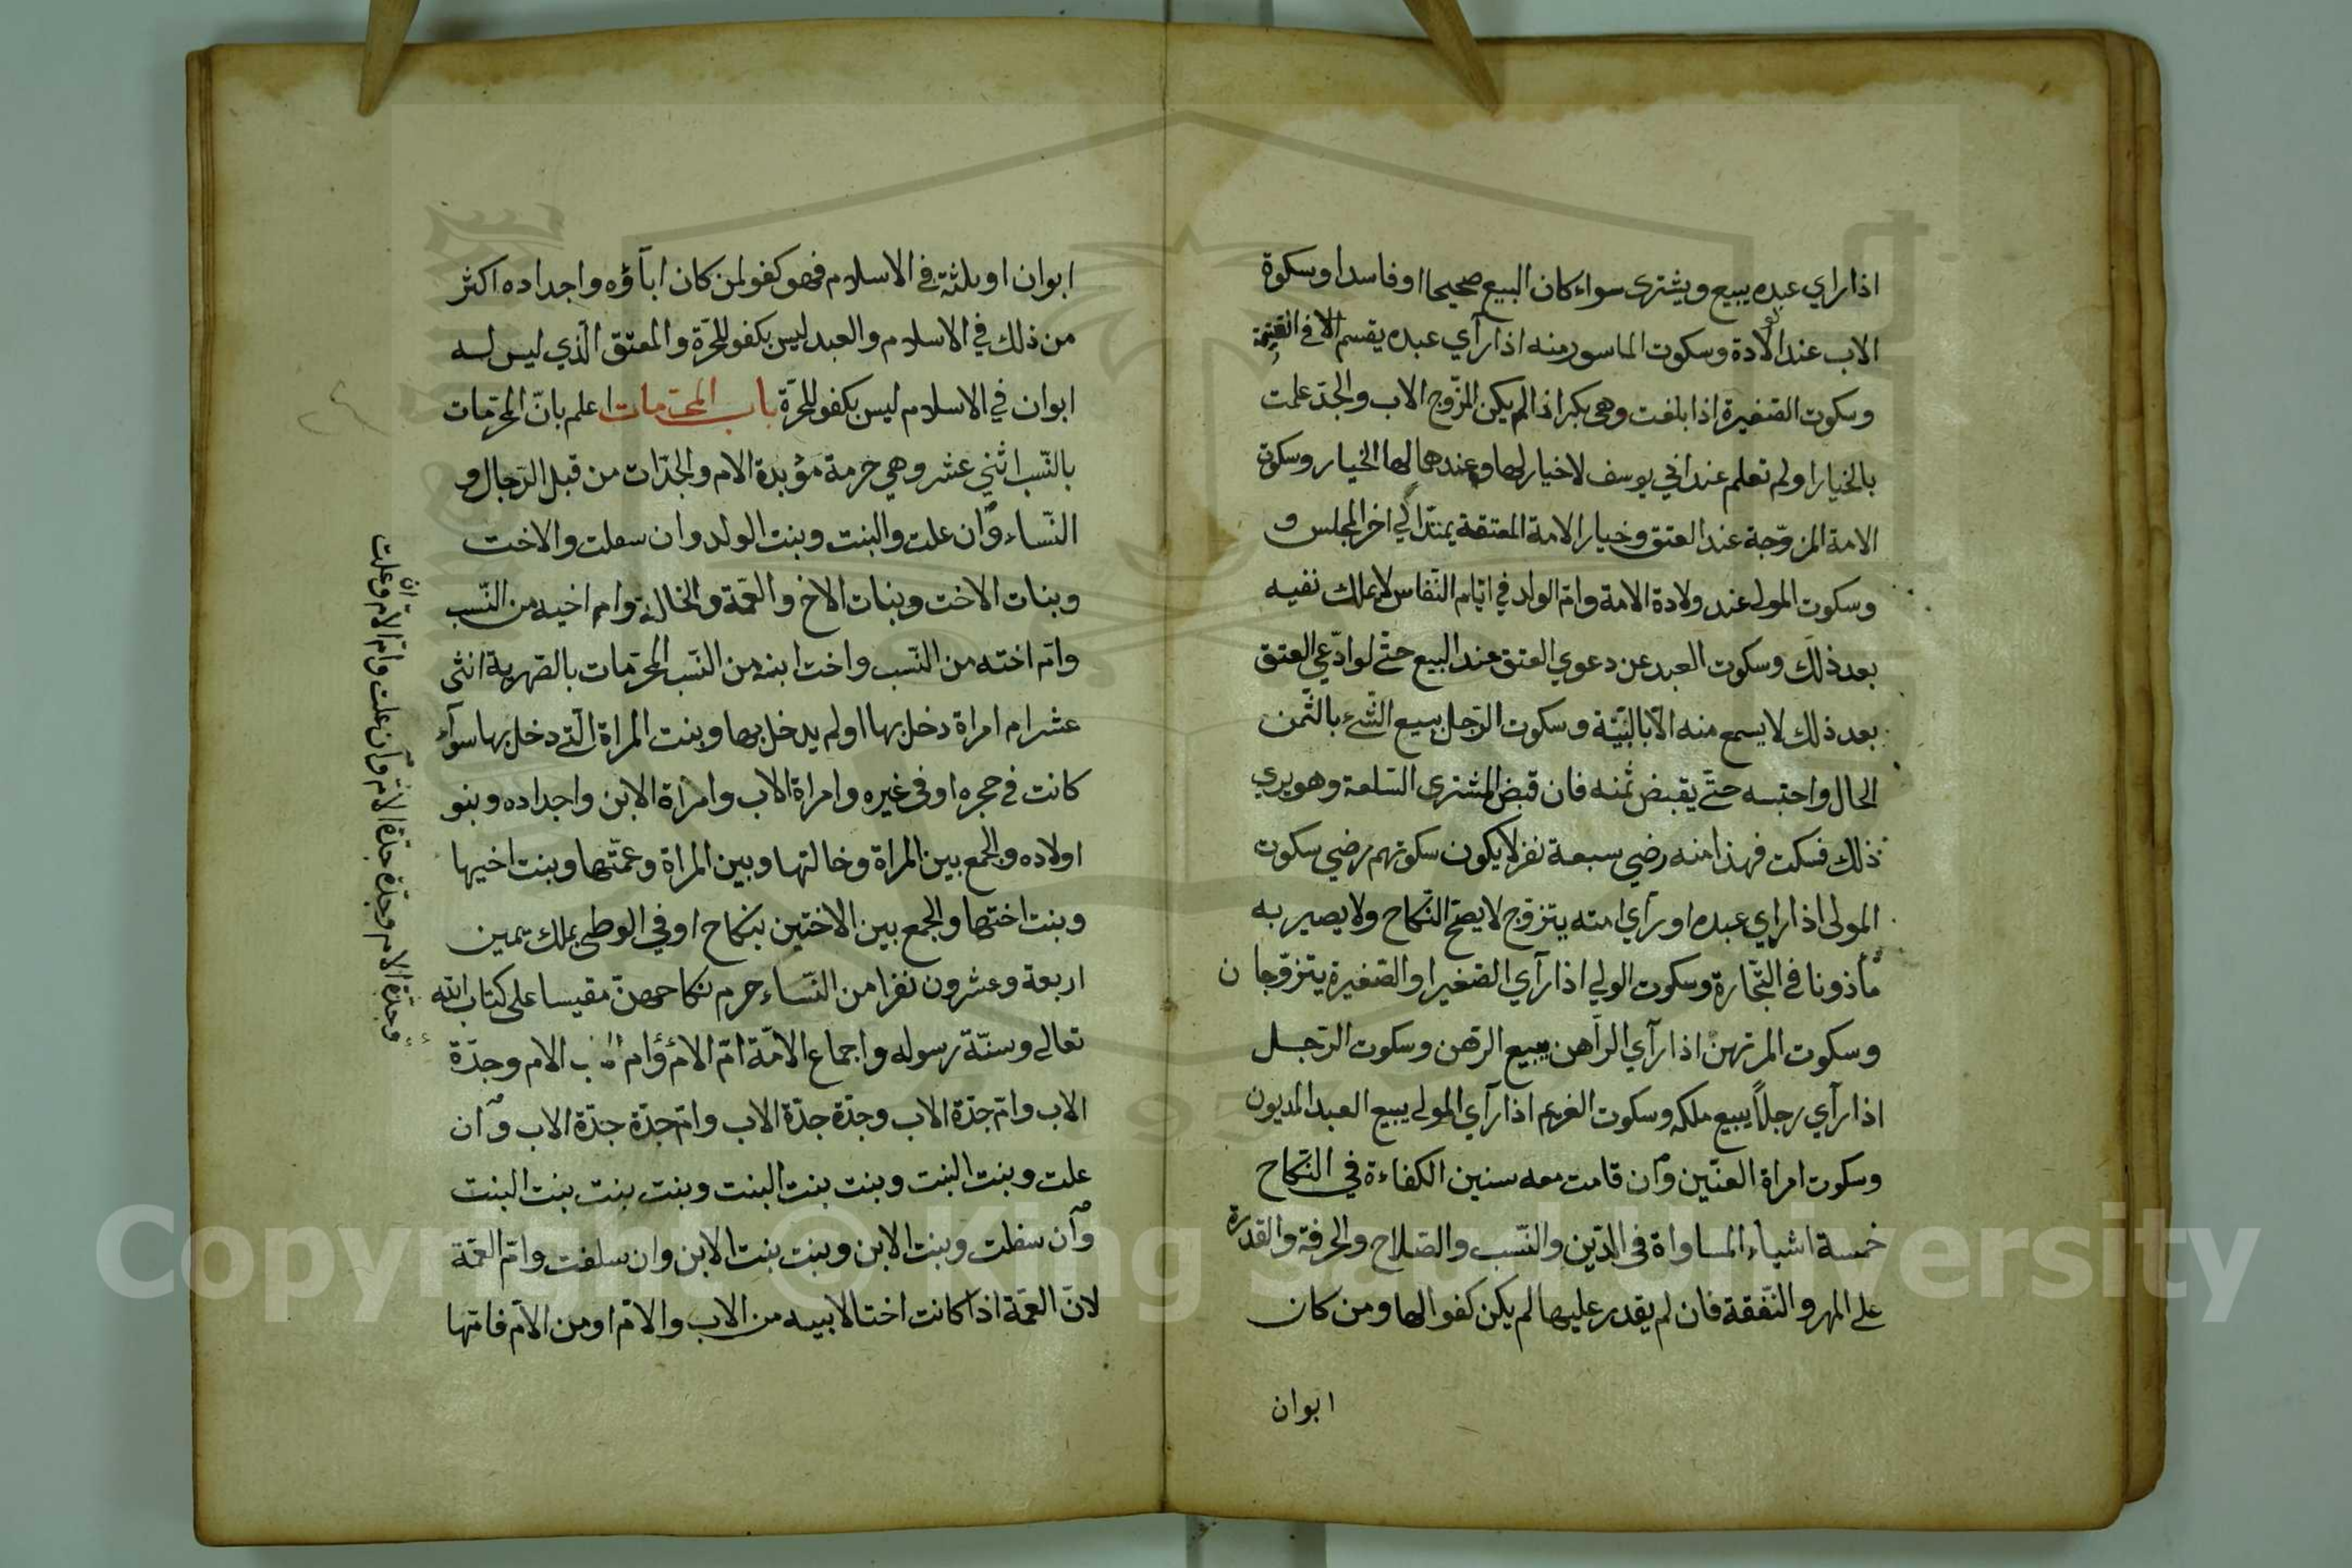 اذا راي عبده يبيع ويشترى سواء كان البيع صحيحا او فاسدا وسكوة
الاب عند الولادة وسكوت الماسور منه اذا رآي عبده يقسم الا في القسمة
وسكوت الصّغيرة اذا بلغت وهى بكر اذا لم يكن المزّوج الاب والجدّ علمت
بالخيار او لم تعلم عند ابي يوسف لا خيار لها وعندهما لها الخيار وسكوة
الامة المزوّجة عند العتق وخيار الامة المعتقة يمتدّ الي اخر المجلس و
وسكوت المولى عند ولادة الامة وامّ الولد في ايّام النّفاس لا يملك نفيه
بعد ذلك وسكوت العبد عن دعوي العتق عند البيع حتّي لو ادّعي العتق
بعد ذلك لا يسمع منه الّا بالبيّنة وسكوت الرّجل ببيع الشّيء بالثّمن
الحال واحتبسه حتّي يقبض ثمنه فان قبض المشترى السّلعة وهو يري
ذلك فسكت فهذا منه رضي سبعة نفر لا يكون سكوتهم رضي سكوت
المولى اذا راي عبده او رآي امته يتزوّج لا يصحّ النّكاح ولا يصير به
مأذونا فى التّجارة وسكوت الولي اذا رآي الصّغير او الصّغيرة يتزوّجان
وسكوت المرتهن اذا رآي الرّاهن يبيع الرّهن وسكوت الرّجل
اذا رآي رجلاً يبيع ملكه وسكوت الغريم اذا رآي المولي يبيع العبد المديون
وسكوت امراة العنّين وان قامت معه سنين الكفاءة في النّكاح
خمسة اشياء المساواة فى الدّين والنّسب والصّلاح والحرفة والقدرة
على المهر والنّفقة فان لم يقدر عليها لم يكن كفوا لها ومن كان
ابوان
ابوان او ثلثة في الاسلام فهو كفو لمن كان اباؤه واجداده اكثر
من ذلك في الاسلام والعبد ليس بكفو للحرّة والمعتق الّذي ليس له
ابوان في الاسلام ليس بكفو للحرّة باب المحرّمات اعلم بانّ المحرّمات
بالنّسب اثني عشر وهي حرمة مؤبدة الام والجدّات من قبل الرّجال و
النّساء وان علت والبنت وبنت الولد وان سفلت والاخت
وبنات الاخت وبنات الاخ والعمّة والخالة وام اخيه من النّسب
وامّ اخته من النّسب واخت ابنه من النّسب المحرّمات بالصّهرية اثنى
عشر ام امراة دخل بها او لم يدخل بها وبنت المراة الّتي دخل بها سوآء
كانت في حجره او فى غيره وامراة الاب وامراة الابن واجداده وبنو
اولاده والجمع بين المراة وخالتها وبين المراة وعمّتها وبنت اخيها
وبنت اختها والجمع بين الاختين بنكاح او في الوطى بملك يمين
اربعة وعشرون نفرا من النّساء حرم نكاحهنّ مقيسا على كتاب الله
تعالى وسنّة رسوله واجماع الامّة امّ الام وام الاب الام وجدّة
الاب وامّ جدّة الاب وجدّة جدّة الاب وامّ جدّة جدّة الاب وان
علت وبنت البنت وبنت بنت البنت وبنت بنت بنت البنت
وان سفلت وبنت الابن وبنت بنت الابن وان سلفت وامّ العمّة
لانّ العمّة اذا كانت اختا لابيه من الاب والامّ او من الامّ فامّها
وجدّة الام وجدّة جدّة الامّ وان علت وامّ الامّ وان علت